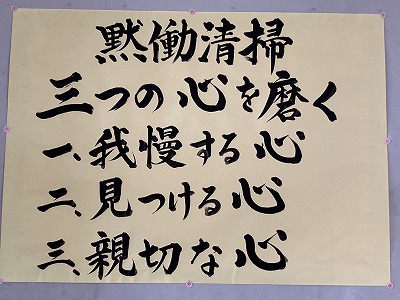 黙働清掃
三つの心を磨く
一、我慢する心
二、見つける心
三、親切な心